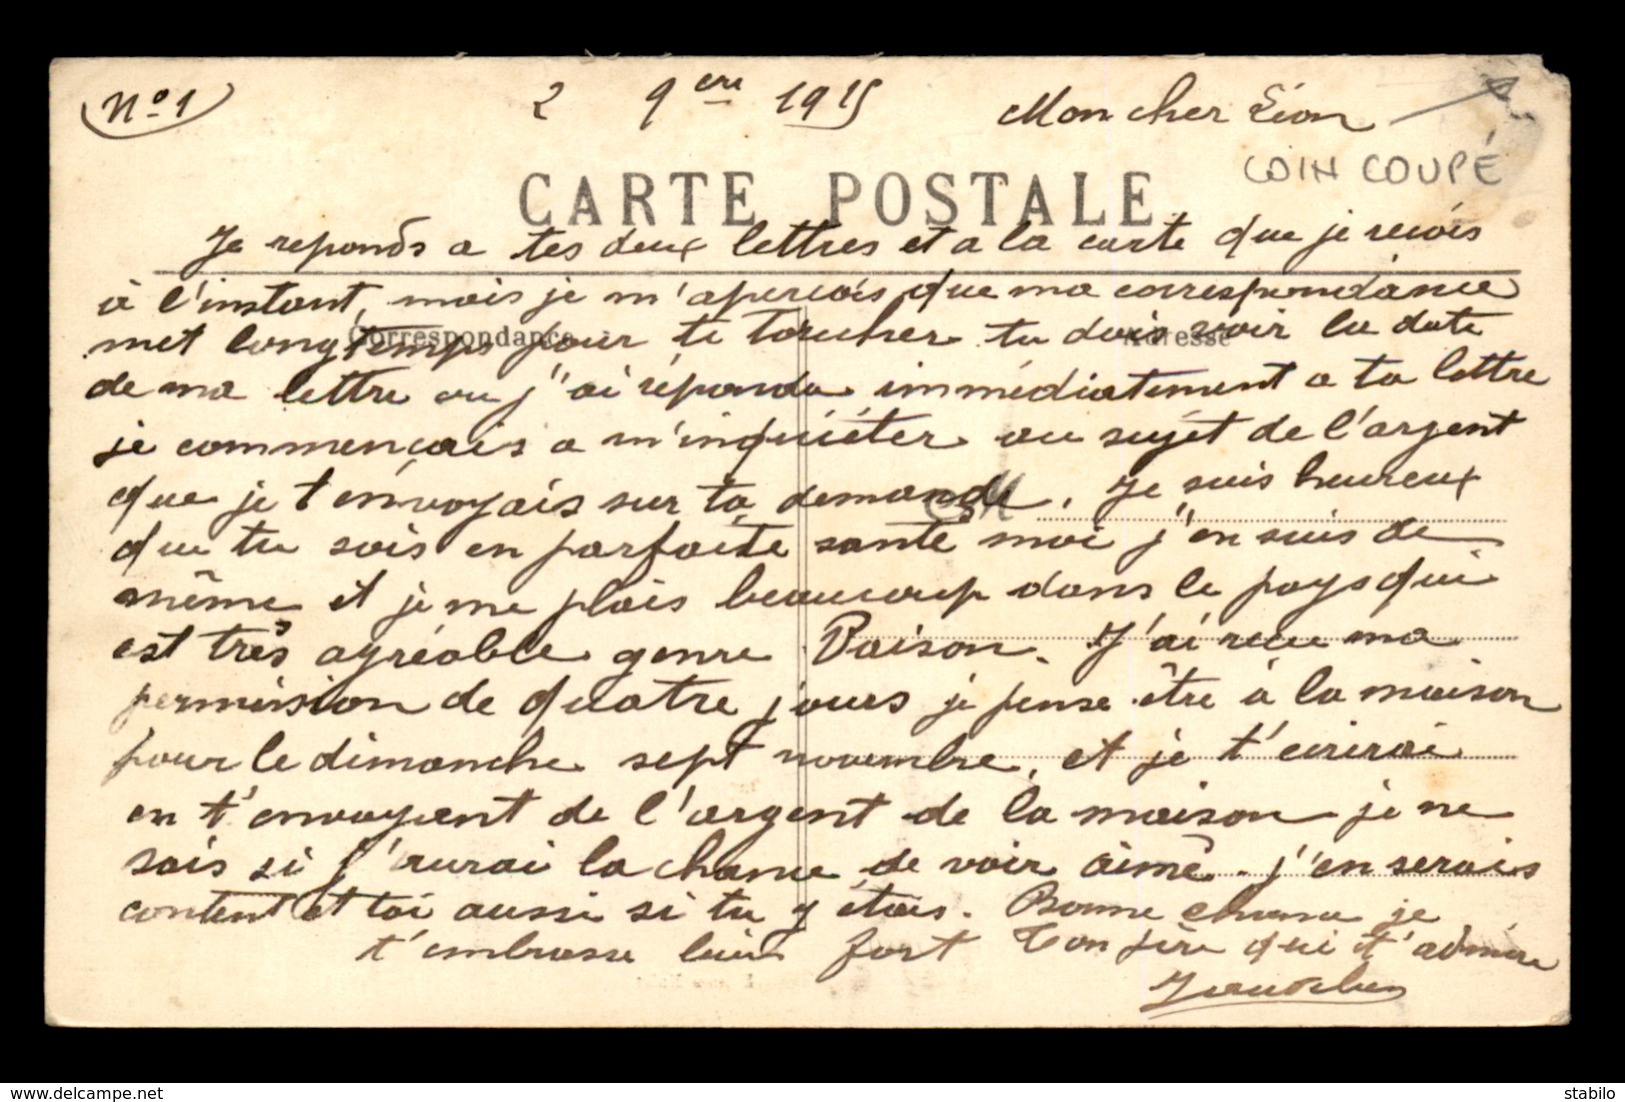 N° 1
2 9bre 1915 Mon cher Léon
COIN COUPÉ
CARTE POSTALE
Je reponds a tes deux lettres et a la carte que je reçois
à l'instant, mais je m'aperçois que ma correspondance
Correspondance Adresse
met longtemps pour te toucher tu dois voir la date
de ma lettre ou j'ai répondu immédiatement a ta lettre
je commençais a m'inquiéter au sujet de l'argent
que je t'envoyais sur ta demande. Je suis heureux
que tu sois en parfaite santé moi j'en suis de
même et je me plais beaucoup dans le pays qui
est très agréable genre Vaison. J'ai reçu ma
permission de quatre jours je pense être à la maison
pour le dimanche sept novembre, et je t'écrirai
en t'envoyant de l'argent de la maison je ne
sais si j'aurai la chance de voir aimé. j'en serais
content et toi aussi si tu y étais. Bonne chance je
t'embrasse bien fort Ton père qui t'admire
delcampe.net
stabilo